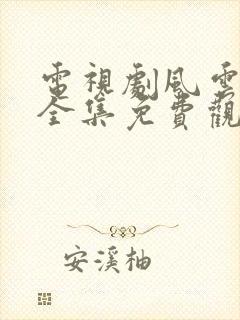 電視劇風雲
全集免費觀
安溪柚